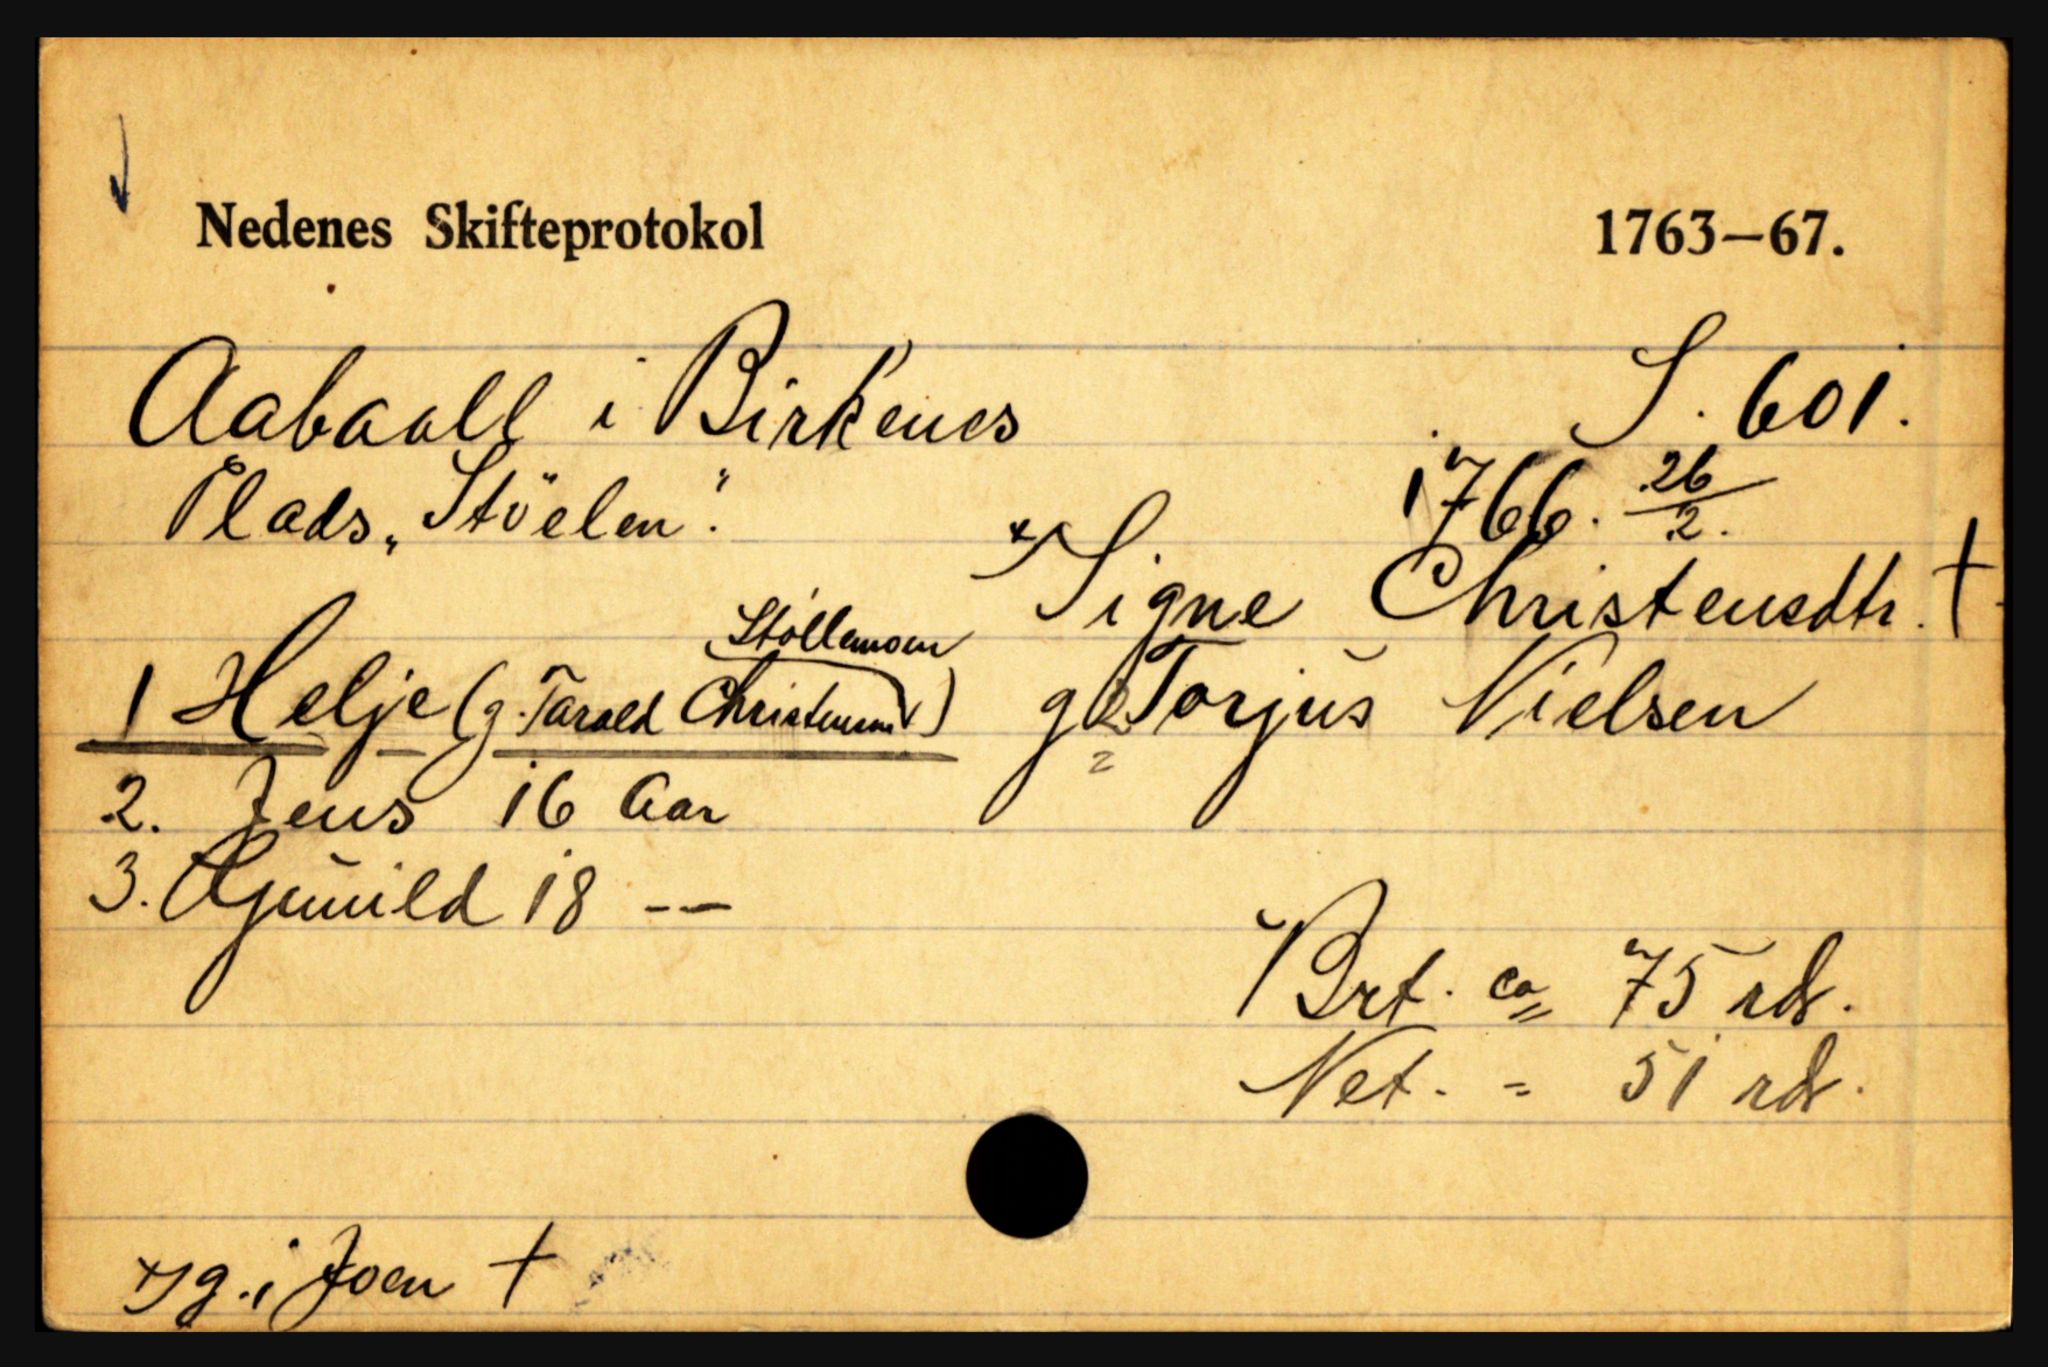 Nedenes Skifteprotokol 1763–67.
Aabaall i Birkenes S. 601.
Plads „Stöelen". 1766. 26/2.
* Signe Christensdtr. †
Stöllemoen
1 Helje (g. Tarald Christensen) g 2 Torjus Nielsen
2
2. Jens 16 Aar
3. Gunild 18 --
Brt. ca 75 rdr.
Net. = 51 rdr.
* g. 1 Joen †